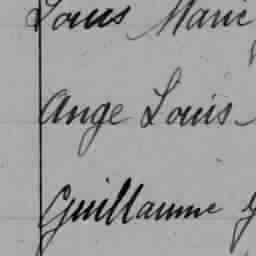 Louis Marie
Ange Louis
Guillaume